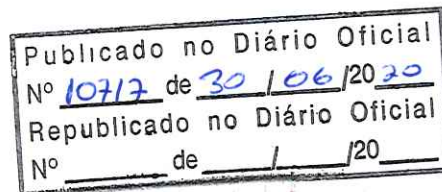 Publicado no Diário Oficial
Nº 10717 de 30 / 06 /2020
Republicado no Diário Oficial
Nº ______ de ____/____/20____